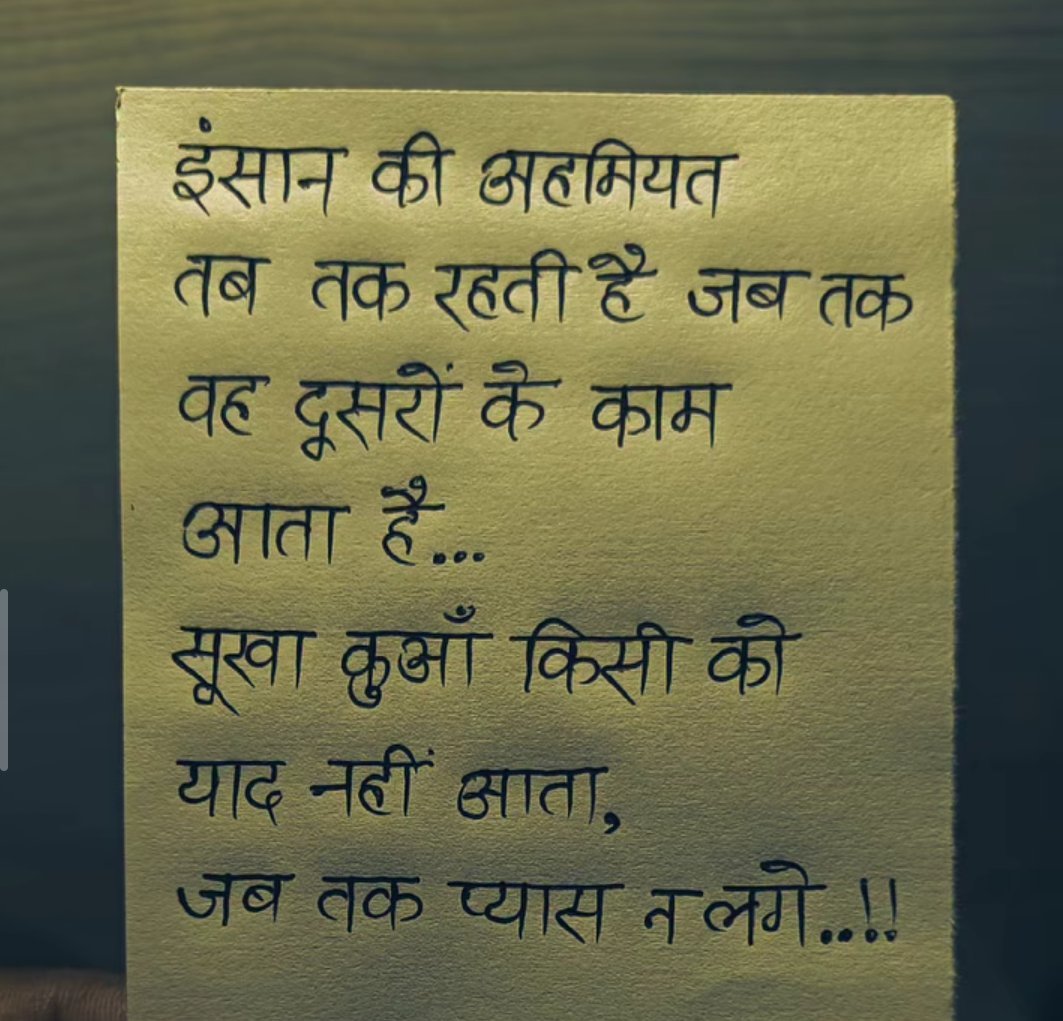 इंसान की अहमियत
तब तक रहती है जब तक
वह दूसरों के काम
आता है...
सूखा कुआँ किसी को
याद नहीं आता,
जब तक प्यास न लगे..!!